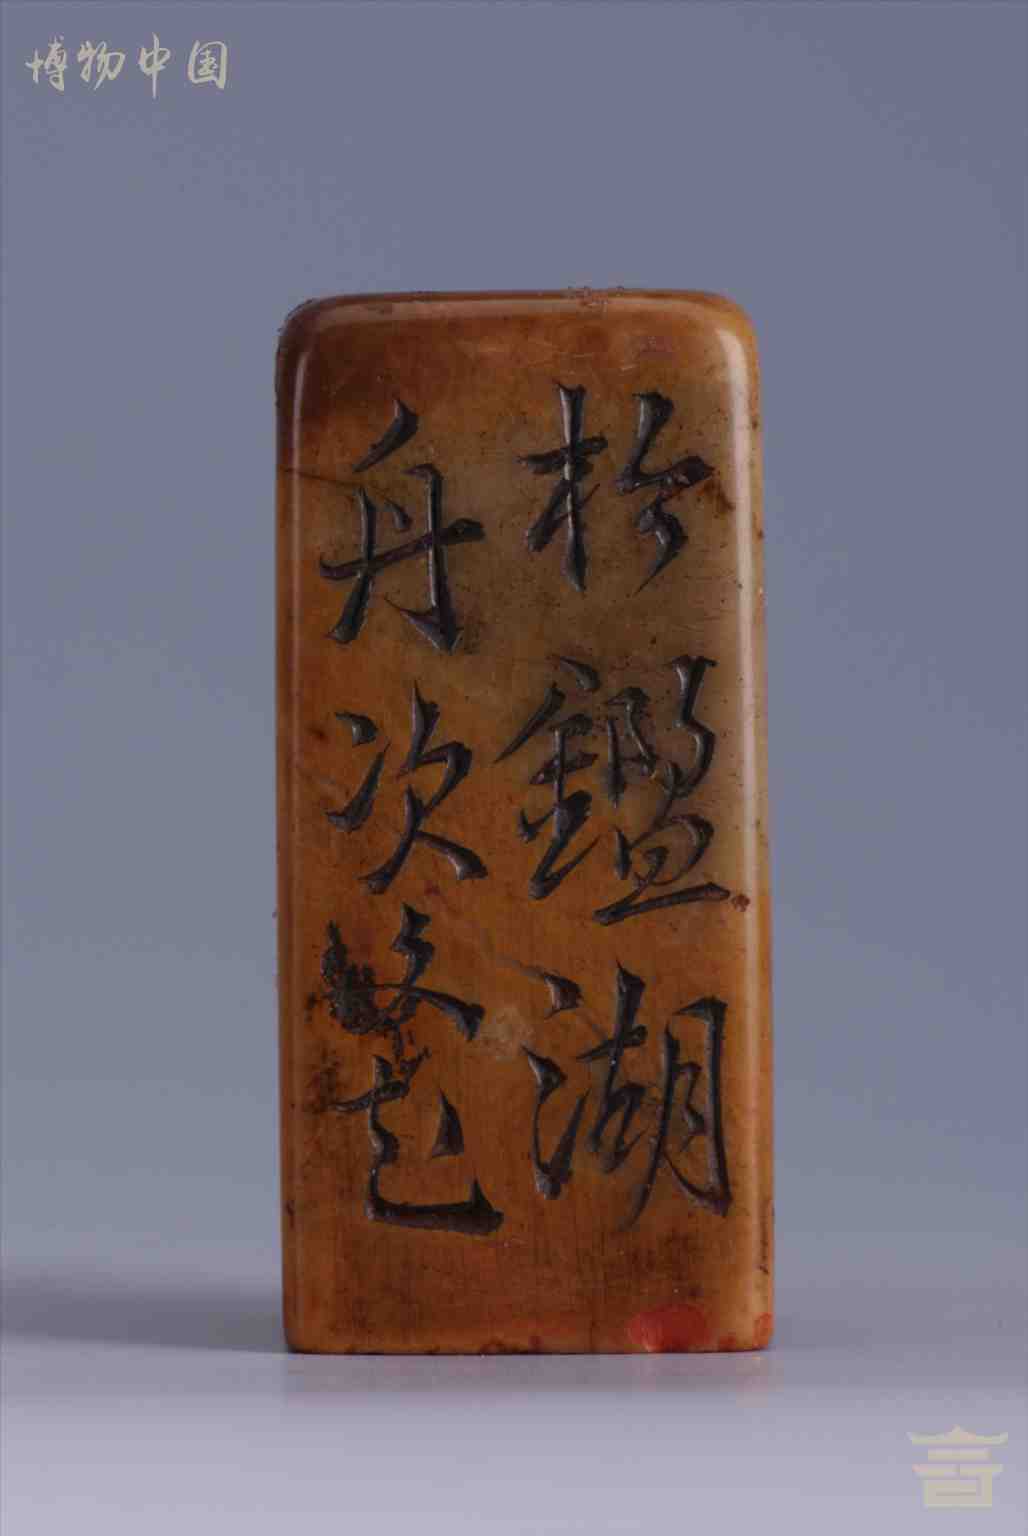 博物中国
於鑑湖
舟次